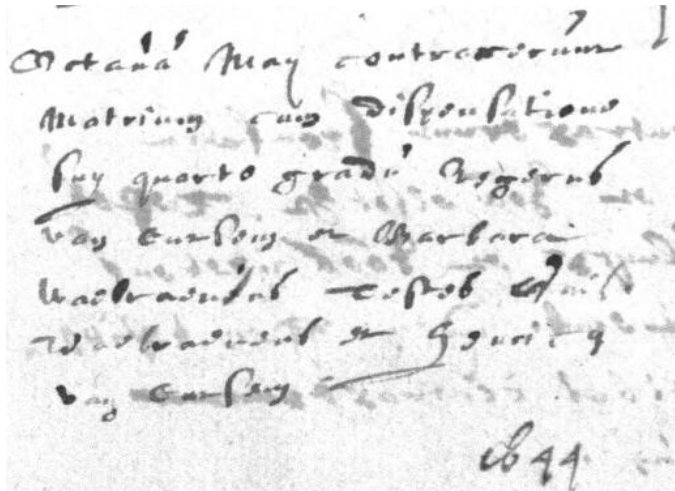 Octava May contraxerunt
Matrium cum dispensatione
quarto gradu Regerus
van Eursem et Barbara
Waelraevens Testes
Waelraevens et Henricq
van Eursem
1644